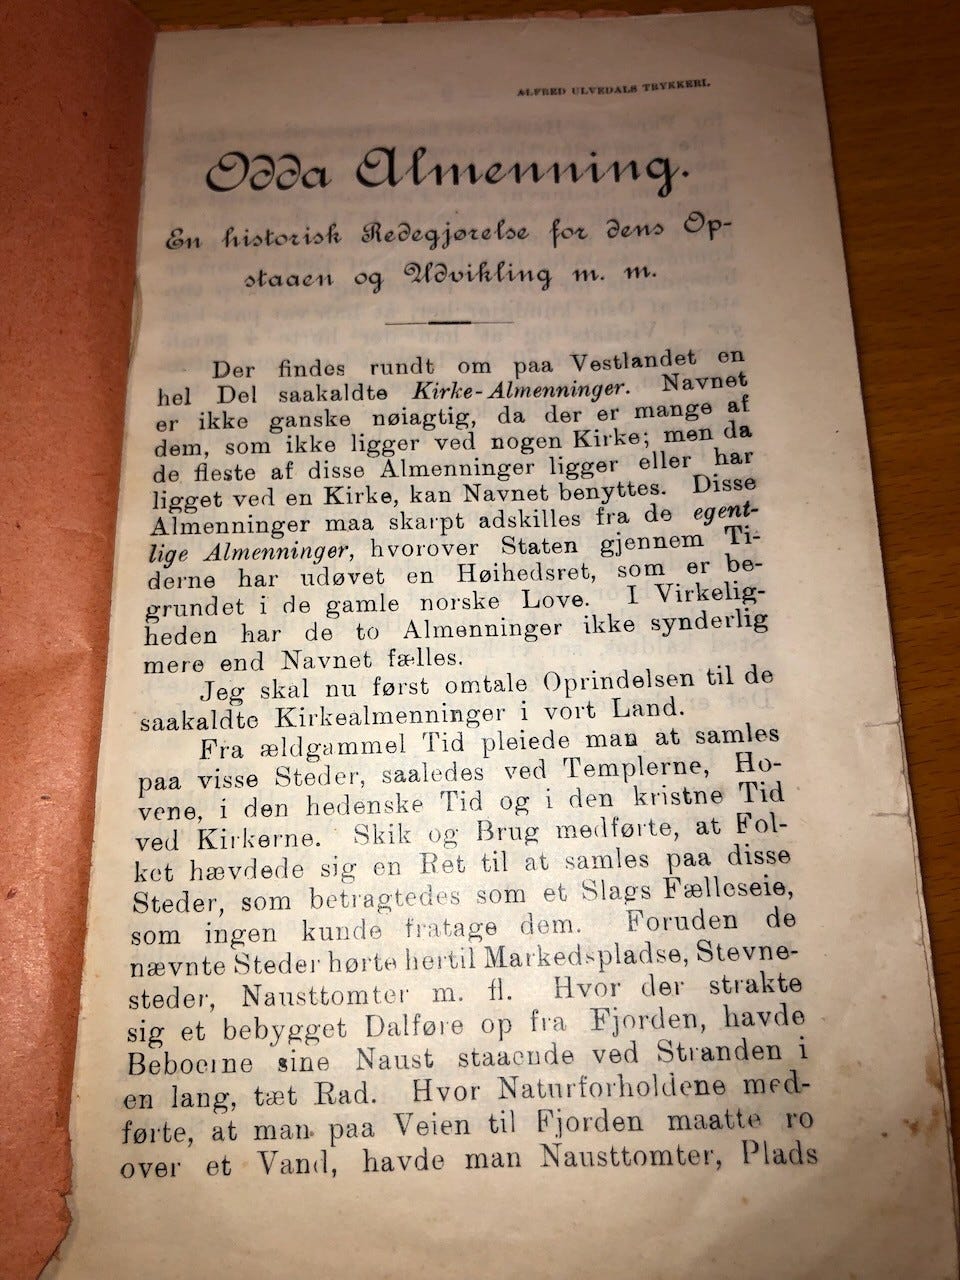 ALFRED ULVEDALS TRYKKERI.
Odda Almenning.
En historisk Redegjørelse for dens Op-
staaen og Udvikling m. m.
Der findes rundt om paa Vestlandet en
hel Del saakaldte Kirke-Almenninger. Navnet
er ikke ganske nøiagtig, da der er mange af
dem, som ikke ligger ved nogen Kirke; men da
de fleste af disse Almenninger ligger eller har
ligget ved en Kirke, kan Navnet benyttes. Disse
Almenninger maa skarpt adskilles fra de egent-
lige Almenninger, hvorover Staten gjennem Ti-
derne har udøvet en Høihedsret, som er be-
grundet i de gamle norske Love. I Virkelig-
heden har de to Almenninger ikke synderlig
mere end Navnet fælles.
Jeg skal nu først omtale Oprindelsen til de
saakaldte Kirkealmenninger i vort Land.
Fra ældgammel Tid pleiede man at samles
paa visse Steder, saaledes ved Templerne, Ho-
vene, i den hedenske Tid og i den kristne Tid
ved Kirkerne. Skik og Brug medførte, at Fol-
ket hævdede sig en Ret til at samles paa disse
Steder, som betragtedes som et Slags Fælleseie,
som ingen kunde fratage dem. Foruden de
nævnte Steder hørte hertil Markedspladse, Stevne-
steder, Nausttomter m. fl. Hvor der strakte
sig et bebygget Dalføre op fra Fjorden, havde
Beboerne sine Naust staaende ved Stranden i
en lang, tæt Rad. Hvor Naturforholdene med-
førte, at man paa Veien til Fjorden maatte ro
over et Vand, havde man Nausttomter, Plads